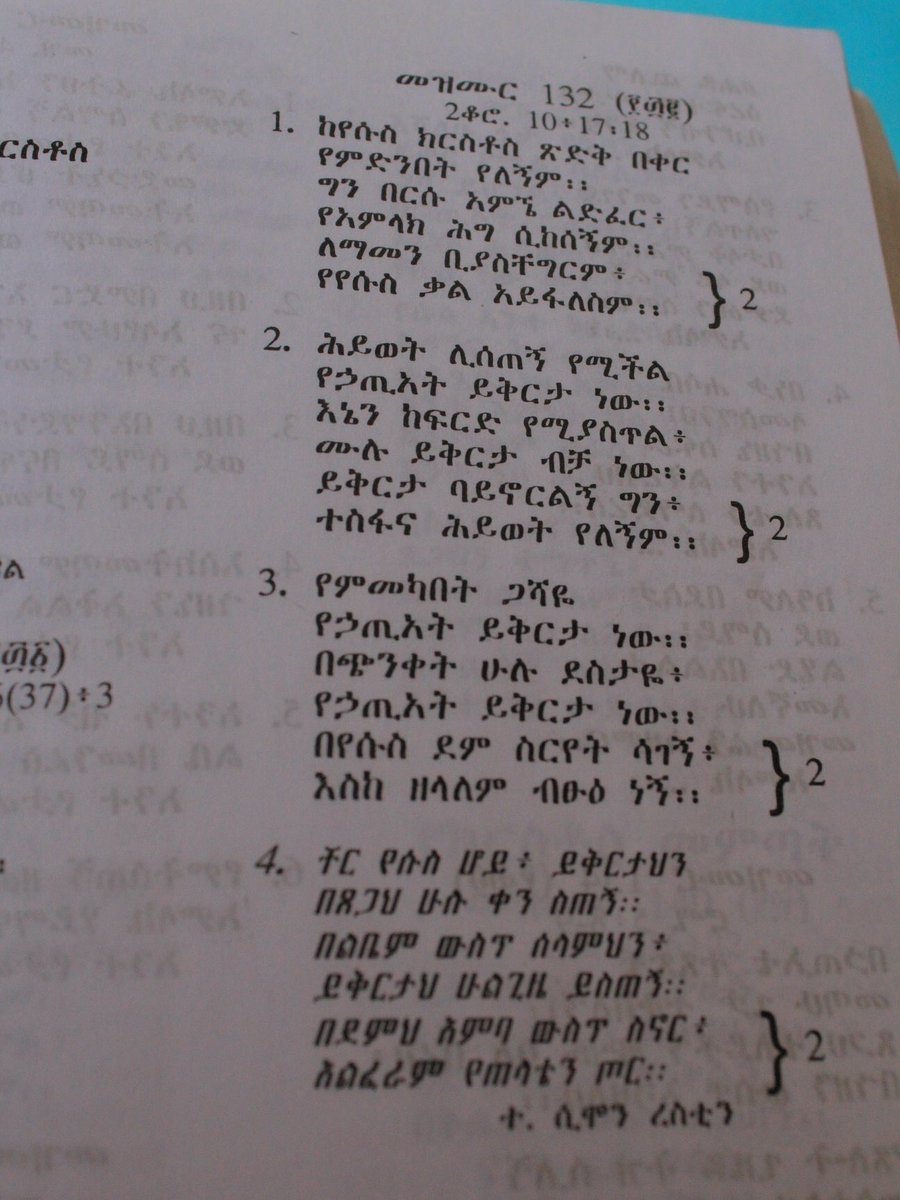 መዝሙር 132 (፻፴፪)
2ቆሮ. 10፥17፥18
1. ከየሱስ ክርስቶስ ጽድቅ በቀር
የምድንበት የለኝም፡፡
ግን በርሱ አምኜ ልድፈር፥
የአምላክ ሕግ ሲከሰኝም፡፡
ለማመን ቢያስቸግርም፥
የየሱስ ቃል አይፋለስም፡፡ } 2
2. ሕይወት ሊሰጠኝ የሚችል
የኃጢአት ይቅርታ ነው፡፡
እኔን ከፍርድ የሚያስጥል፥
ሙሉ ይቅርታ ብቻ ነው፡፡
ይቅርታ ባይኖርልኝ ግን፥
ተስፋና ሕይወት የለኝም፡፡ } 2
3. የምመካበት ጋሻዬ
የኃጢአት ይቅርታ ነው፡፡
በጭንቀት ሁሉ ደስታዬ፥
የኃጢአት ይቅርታ ነው፡፡
በየሱስ ደም ስርየት ሳገኝ፥
እስከ ዘላለም ብፁዕ ነኝ፡፡ } 2
4. ቸር የሱስ ሆይ፥ ይቅርታህን
በጸጋህ ሁሉ ቀን ስጠኝ፡፡
በልቤም ውስጥ ሰላምህን፥
ይቅርታህ ሁልጊዜ ይስጠኝ፡፡
በደምህ አምባ ውስጥ ስኖር፥
አልፈራም የጠላቴን ጦር፡፡ } 2
ተ. ሲሞን ረስቲን
ርስቶስ
ል
፴፩)
(37)፥3